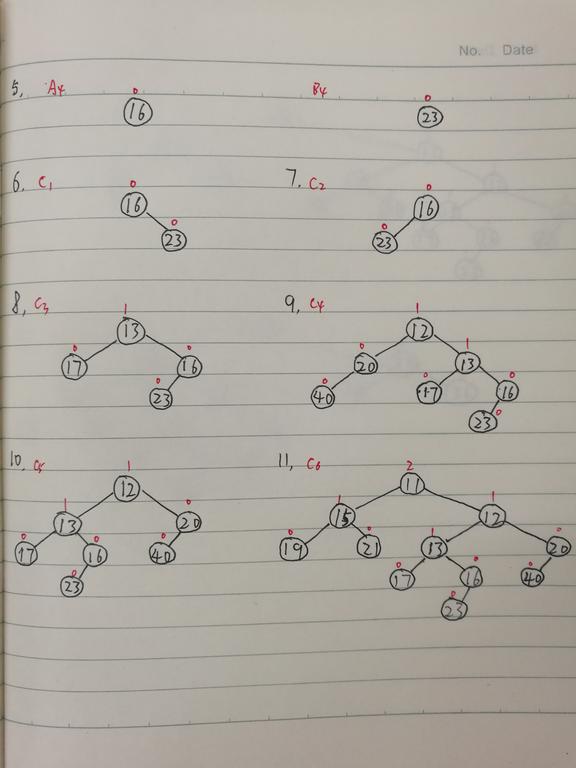 No. Date
5, A4 B4
0 0
16 23
6, C1 7, C2
0 0
16 16
0 0
23 23
8, C3 9, C4
1 1
13 12
0 0 0 1
17 16 20 13
0 0 0 0
23 40 17 16
0
23
10, C5 11, C6
1 2
12 11
1 0 1 1
13 20 15 12
0 0 0 0 0 1 0
17 16 40 19 21 13 20
0 0 0 0
23 17 16 40
0
23